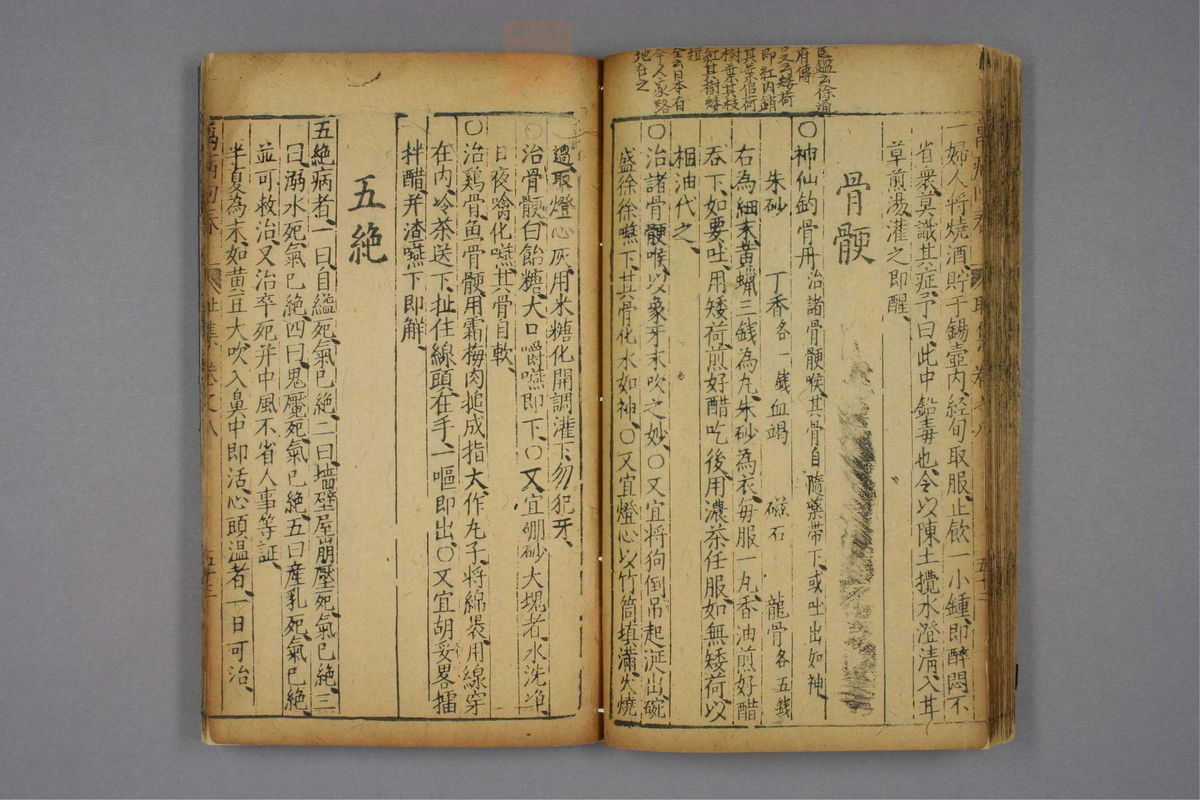 醫鑑云徐通
府傳
又云矮荷
即紅內銷
其葉倍何
樹葉其枝
紅其樹矮
短
全云日本有
今人家略
地在之
一婦人將燒酒貯于錫壺內、経旬取服、止飲一小鍾、即醉悶不
省衆莫識其症、予曰、此中鉛毒也、令以陳土攪水澄清、入甘
草煎湯、灌之即醒、
骨骾
○神仙鈎骨丹 治諸骨骾喉、其骨自隨藥带下、或吐出如神、
朱砂 丁香各一錢 血竭 磁石 龍骨各五錢
右為細末、黄蝋三錢為丸、朱砂為衣、每服一丸、香油煎好醋
吞下、如要吐、用矮荷煎好醋吃後、用濃茶任服、如無矮荷、以
桕油代之、
○治諸骨骾喉、以象牙末吹之妙、○又宜将狗倒吊起、涎出、碗
盛徐徐嚥下、其骨化水如神、○又宜燈心以竹筒填滿、火燒
過、取燈心灰、用米糖化開調灌下、勿犯牙、
○治骨骾、白飴糖、大口嚼嚥即下、○又宜硼砂大塊者、水洗浄、
日夜噙化嚥、其骨自軟、
○治鷄骨魚骨骾、用霜梅肉搥成指大、作丸子、将綿褁、用線穿
在内、冷茶送下、扯住線頭、在手、一嘔即出、○又宜胡荽畧擂
拌醋、并渣嚥下即解、
五絶
五絶病者、一曰自縊死、氣已絶、二曰墻壁屋崩壓死、氣已絶、三
曰溺水死、氣已絶、四曰鬼魘死、氣已絶、五曰産乳死、氣已絶、
並可救治、又治卒死并中風不省人事等証、
半夏為末、如黄豆大、吹入鼻中即活、心頭温者、一日可治、